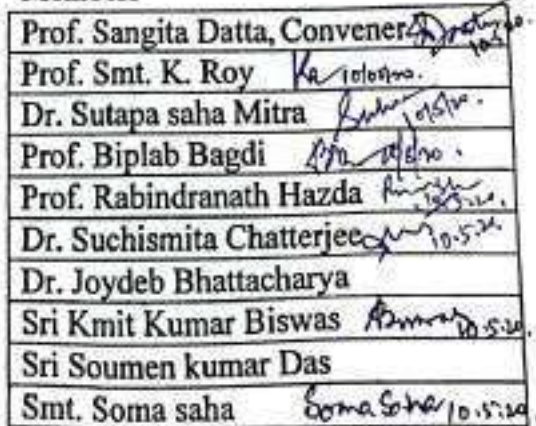 Prof. Sangita Datta, Convener 10.5.20.
Prof. Smt. K. Roy 10/05/20.
Dr. Sutapa saha Mitra 10/5/20.
Prof. Biplab Bagdi
Prof. Rabindranath Hazda 10.5.20.
Dr. Suchismita Chatterjee 10.5.20.
Dr. Joydeb Bhattacharya
Sri Kmit Kumar Biswas 10.5.20.
Sri Soumen kumar Das
Smt. Soma saha Soma Saha 10.5.20.